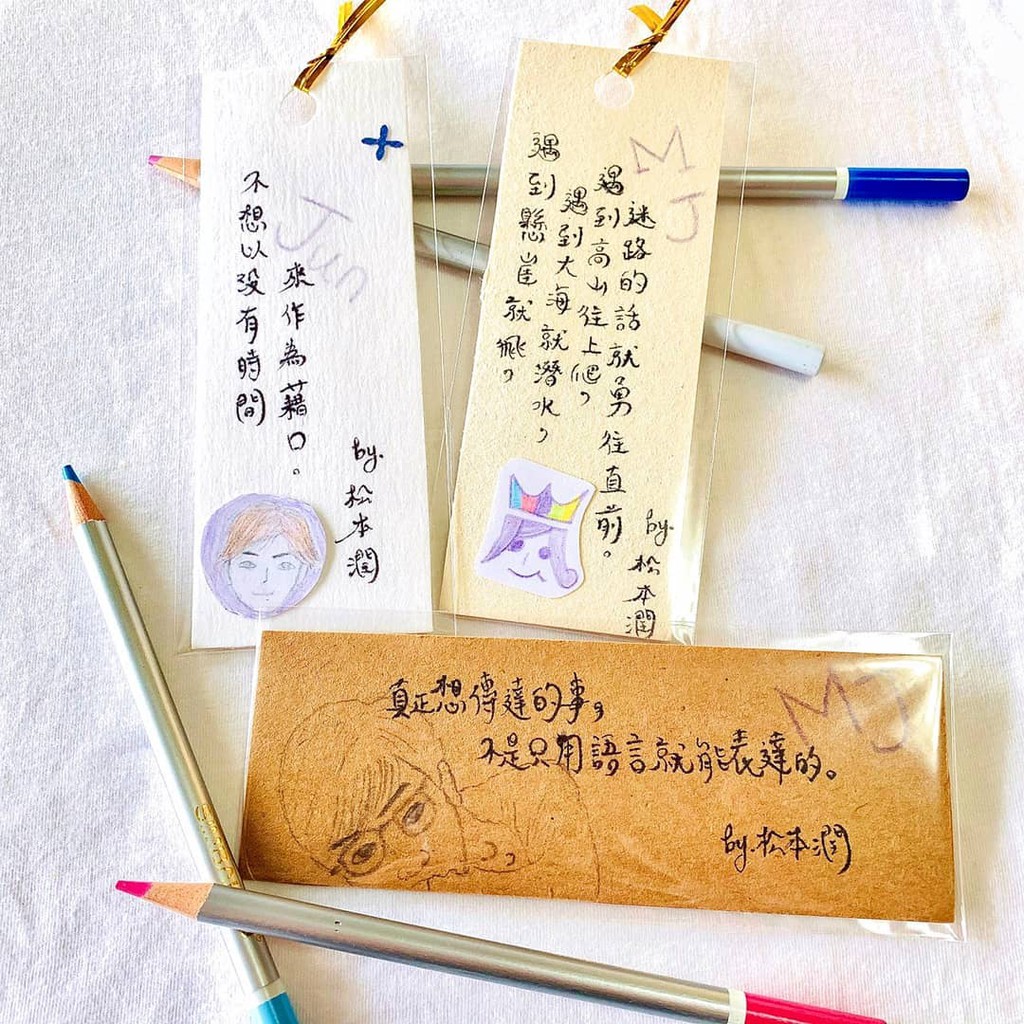 Jun
不想以没有時間
來作為藉口。
by. 松本潤
M
J
遇到懸崖就飛,
遇到大海就潛水,
遇到高山往上爬,
迷路的話就勇往直前。
by. 松本潤
MJ
真正想傳達的事,
不是只用語言就能表達的。
by. 松本潤